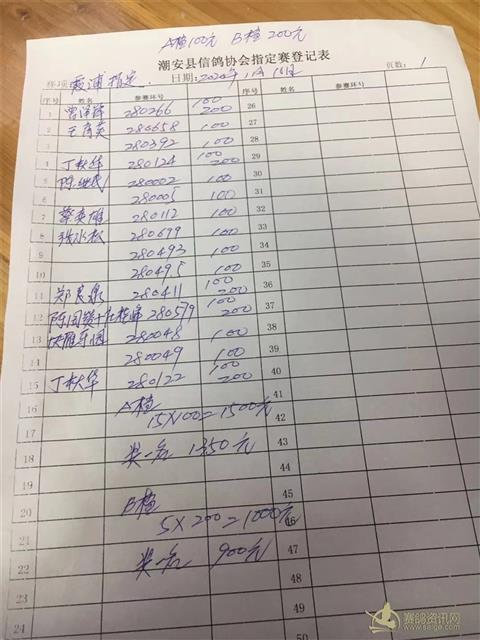 A档100元 B档200元
潮安县信鸽协会指定赛登记表
样项 霞浦指定. 日期: 2020年1月18日 页数: 1
序号 姓名 参赛环号 序号 姓名 参赛环号
1 曾泽辉 280266 100 200 26
2 280658 100 27
280392 100 28
4 丁秋华 280124 100 200 29
5 280002 100 30
280005 100 31
7 蔡英雄 280112 100 32
8 280679 100 33
280493 100 34
10 280495 100 35
11 郑良泉 280411 100 200 36
12 280579 100 200 37
13 280048 100 38
14 280049 100 39
15 丁秋华 280122 100 200 40
16 A档 41
17 15X100=1500元 42
18 奖一名 1350元 43
44
20 B档 45
21 5X200=1000元 46
22 奖一名 900元 47
23 48
24 49
50
赛鸽资讯网
www.saige.com